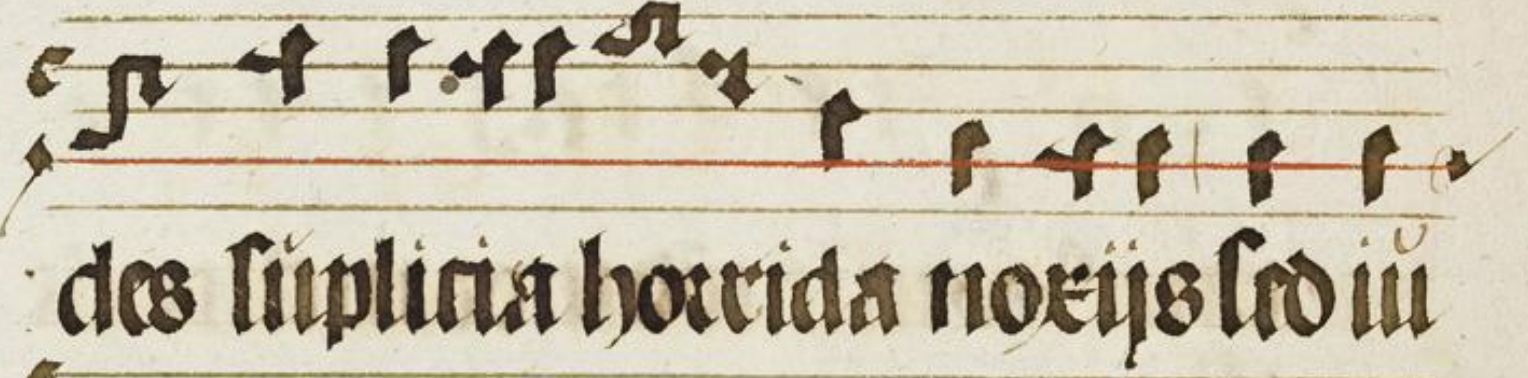 des supplicia horrida noxijs sed iu